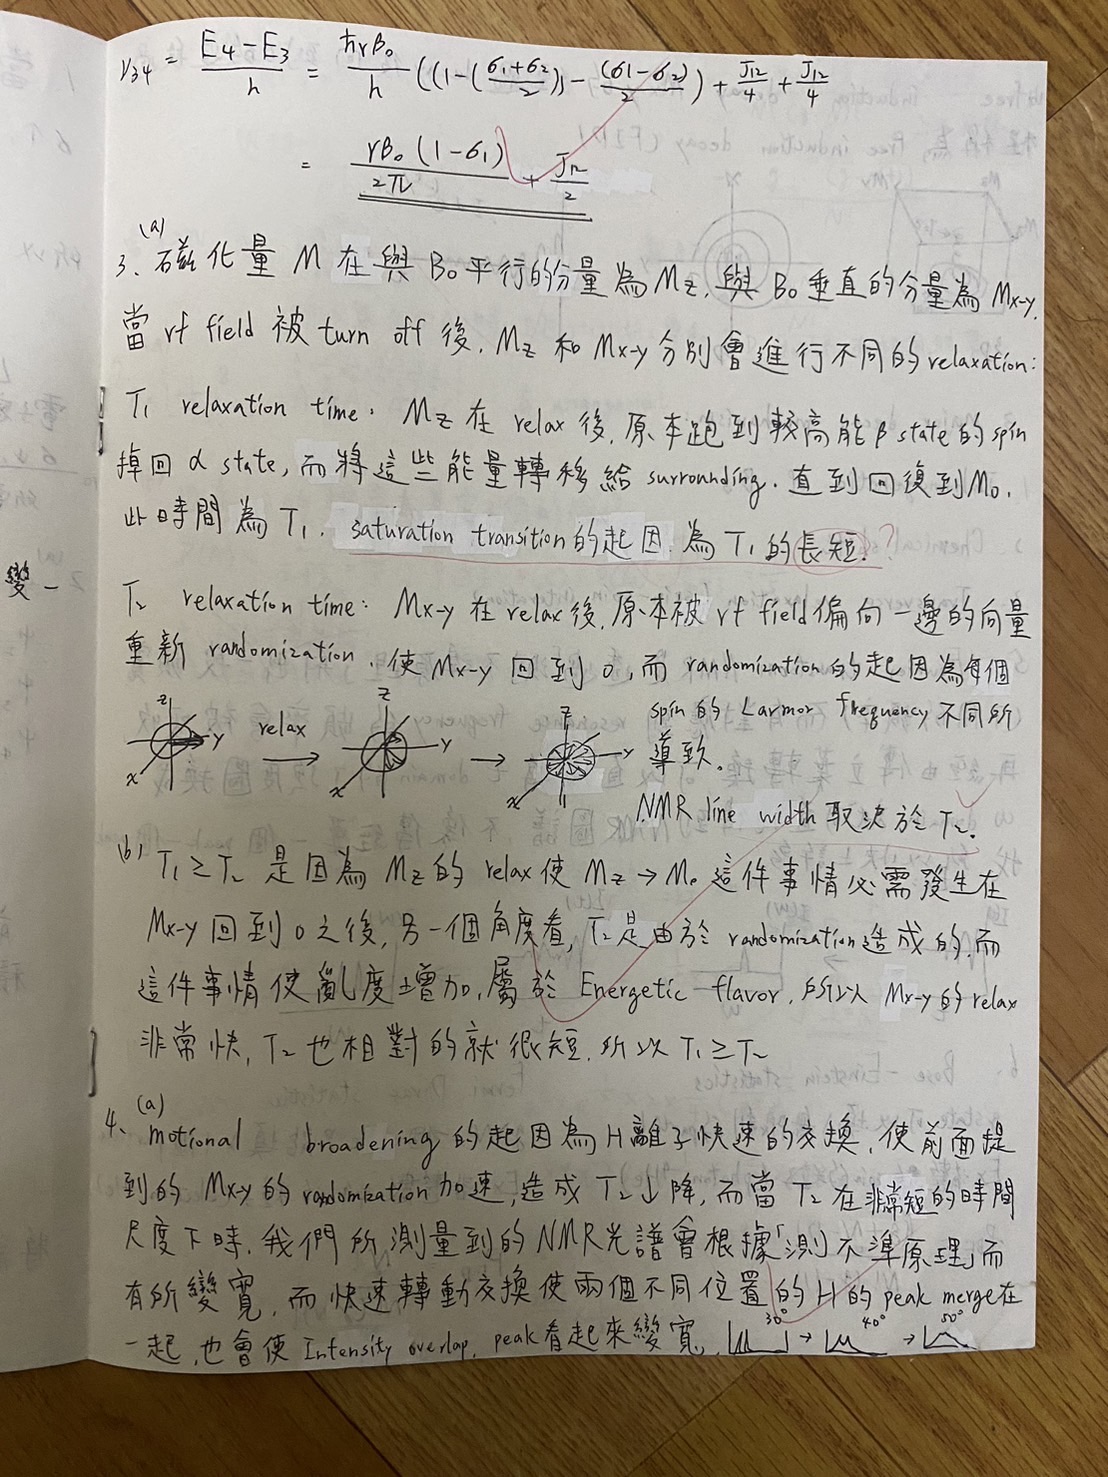 ν34 = (E4-E3)/h = ħγB0/h ((1-(σ1+σ2)/2)) - (σ1-σ2)/2) + J12/4 + J12/4
= γB0(1-σ1)/2π + J12/2
(a)
3、磁化量 M 在與 B0 平行的分量為 Mz, 與 B0 垂直的分量為 Mx-y,
當 rf field 被 turn off 後, Mz 和 Mx-y 分別會進行不同的 relaxation:
T1 relaxation time: Mz 在 relax 後, 原本跑到較高能 β state 的 spin
掉回 α state, 而將這些能量轉移給 surrounding. 直到回復到 M0.
此時間為 T1. saturation transition的起因為 T1 的長短. ?
T2 relaxation time: Mx-y 在 relax 後, 原本被 rf field 偏向一邊的向量
重新 randomization, 使 Mx-y 回到 0, 而 randomization 的起因為每個
spin 的 Larmor frequency 不同所
導致.
z y x relax → z y x → z y x
NMR line width 取決於 T2.
(b) T1 ≥ T2 是因為 Mz 的 relax 使 Mz → M0 這件事情必需發生在
Mx-y 回到 0 之後, 另一個角度看, T2是由於 randomization 造成的, 而
這件事情使亂度增加, 屬於 Energetic flavor, 所以 Mx-y 的 relax
非常快, T2 也相對的就很短. 所以 T1 ≥ T2
(a)
4、motional broadening 的起因為 H 離子快速的交換, 使前面提
到的 Mx-y 的 randomization 加速, 造成 T2 ↓降, 而當 T2 在非常短的時間
尺度下時, 我們所測量到的 NMR 光譜會根據「測不準原理」而
有所變寬, 而快速轉動交換使兩個不同位置的 H 的 peak merge在
一起, 也會使 Intensity overlap, peak看起來變寬. 30° → 40° → 50°
變一